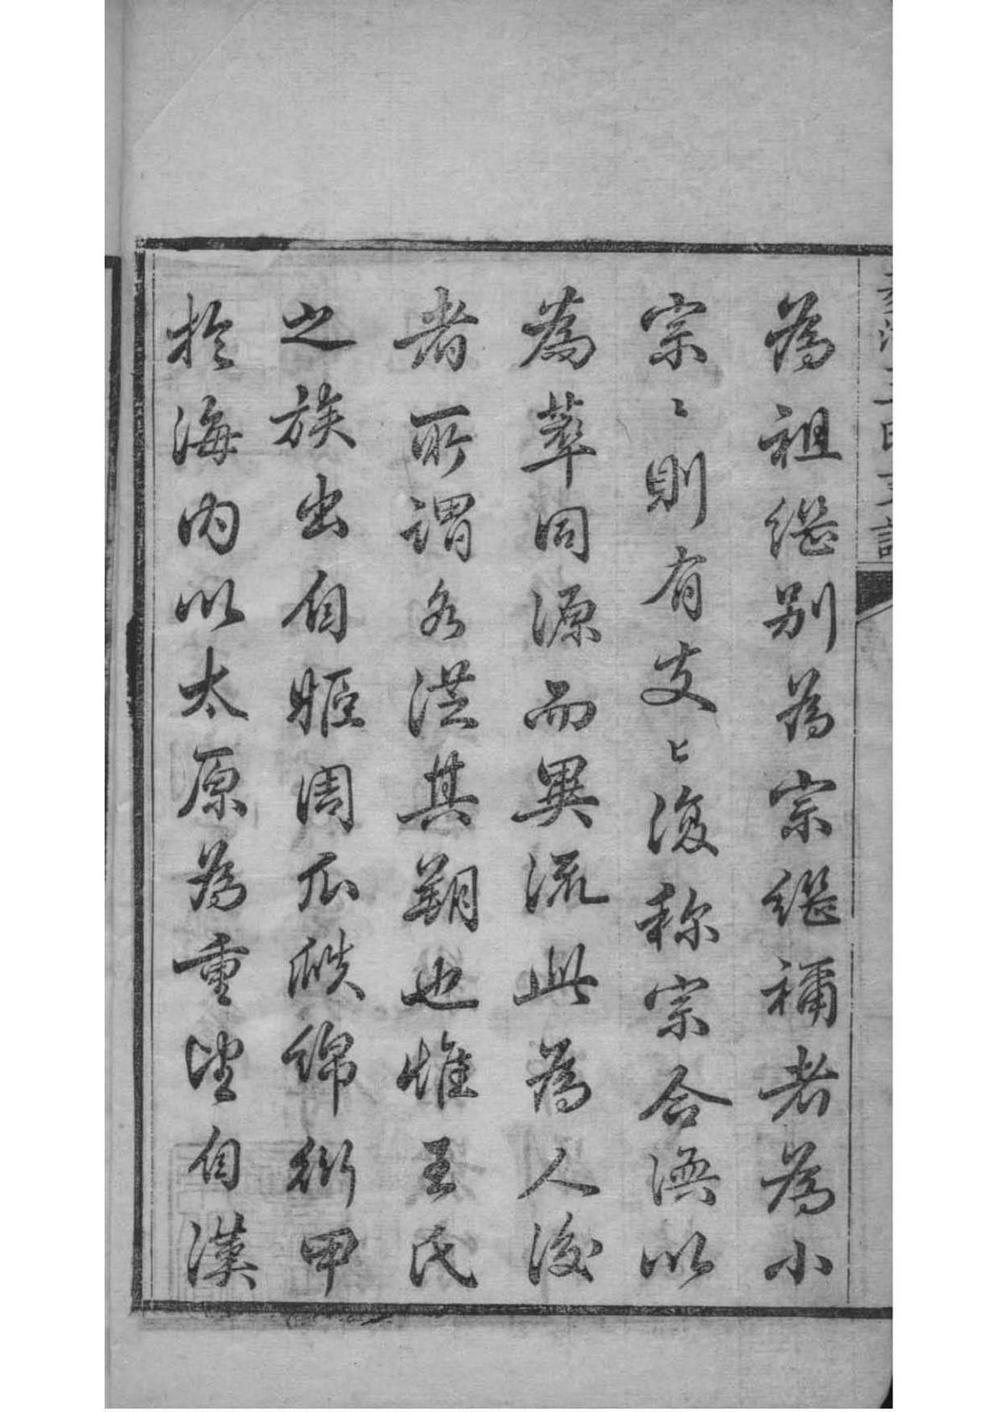 為祖繼别為宗繼禰者為小
宗〻則有支〻復称宗合渙以
為萃同源而異流此為人後
者所謂各洪其朔也惟王氏
之族出自姬周瓜瓞綿衍甲
於海内以太原為重望自漢